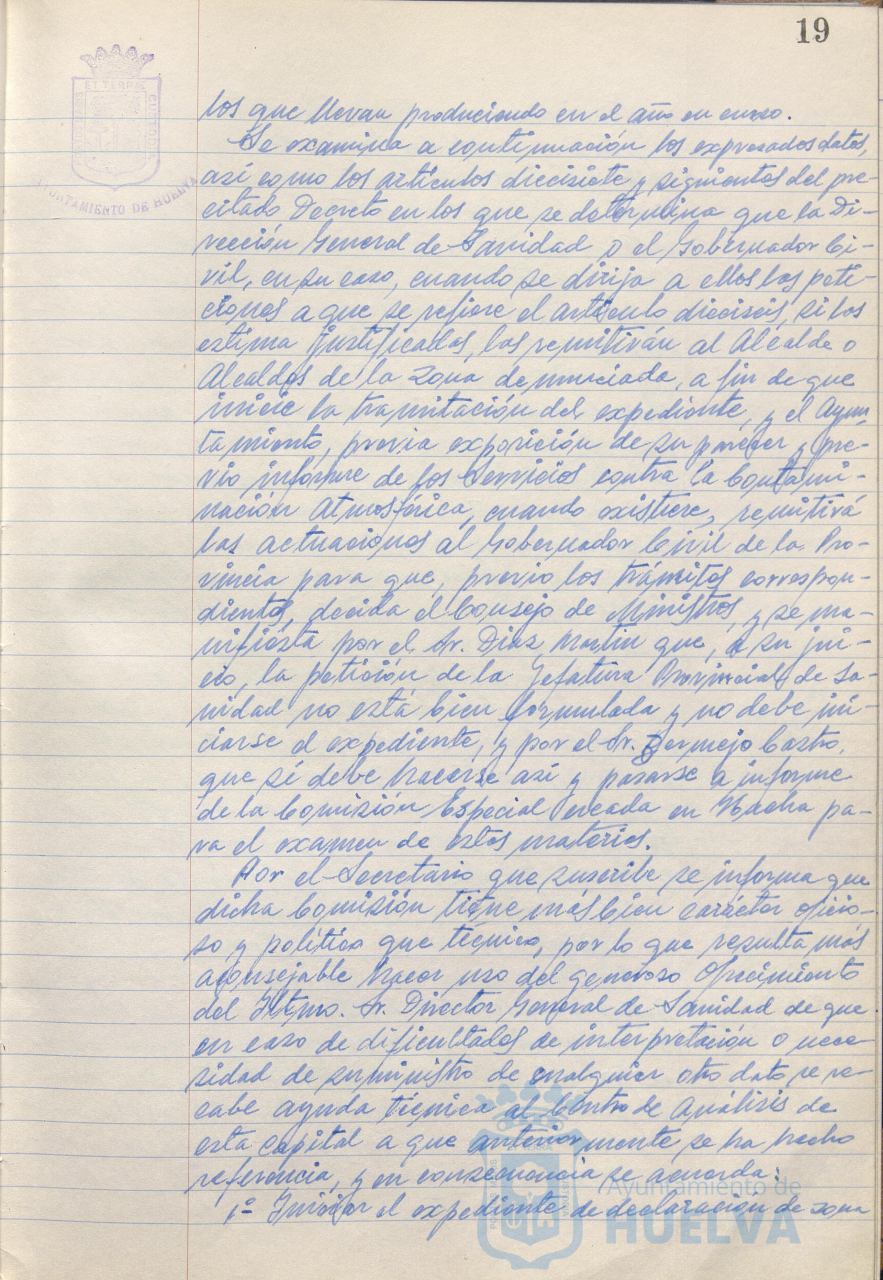 19
ET TERRA
CUSTODIA
AYUNTAMIENTO DE HUELVA
los que llevan produciendo en el año en curso.
Se examina a continuación los expresados datos,
así como los artículos diecisiete y siguientes del pre-
citado Decreto en los que se determina que la Di-
rección General de Sanidad o el Gobernador Ci-
vil, en su caso, cuando se dirija a ellos las peti-
ciones a que se refiere el artículo dieciseis, si los
estima justificadas, las remitirán al Alcalde o
Alcaldes de la zona denunciada, a fin de que
inicie la tramitación del expediente, y el Ayun-
tamiento, previa exposición de su parecer y pre-
vio informe de los Servicios contra la Contami-
nación Atmosférica, cuando existiere, remitirá
las actuaciones al Gobernador Civil de la Pro-
vincia para que, previo los trámites correspon-
dientes, decida el Consejo de Ministros, y se ma-
nifiesta por el Sr. Díaz Martín que, a su jui-
cio, la petición de la Jefatura Provincial de Sa-
nidad no está bien formulada y no debe ini-
ciarse el expediente, y por el Sr. Bermejo Castro,
que sí debe hacerse así y pasarse a informe
de la Comisión Especial creada en fecha pa-
ra el examen de estas materias.
Por el Secretario que suscribe se informa que
dicha Comisión tiene más bien carácter oficio-
so y político que técnico, por lo que resulta más
aconsejable hacer uso del generoso ofrecimiento
del Iltmo. Sr. Director General de Sanidad de que
en caso de dificultades de interpretación o nece-
sidad de suministro de cualquier otro dato se re-
cabe ayuda técnica al Centro de Análisis de
esta capital a que anteriormente se ha hecho
referencia, y en consecuencia se acuerda:
1º Iniciar el expediente de declaración de zona
Ayuntamiento de
HUELVA